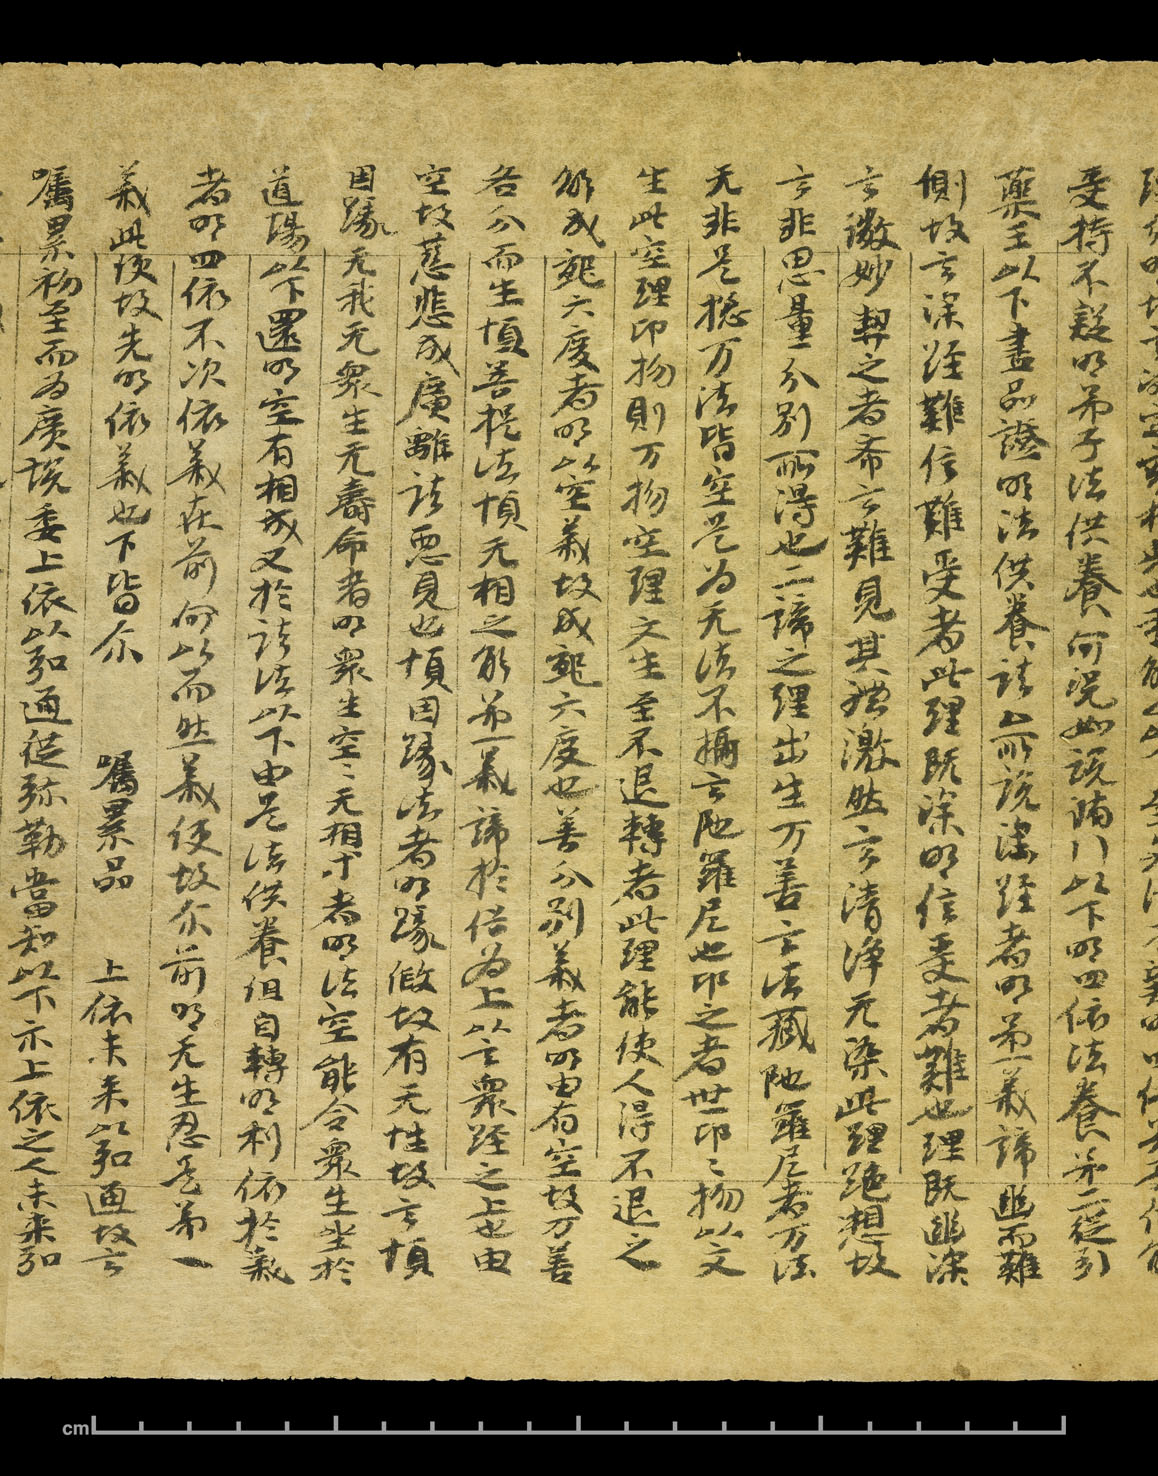 受持不疑明弟子法供養何況如說脩行以下明四依法養第二從引
藥王以下盡品證明法供養諸上所說深經者明第一義諦幽而難
側故言深經難信難受者此理既深明信受者難也理既幽深
言微妙契之者希言難見其理激然言清淨无染此理絕想故
言非思量分別所得也二諦之理出生万善言法藏陁羅尼者万法
无非是揔万法皆空是為无法不攝言陁羅尼也印之者世印〻物以文
生此空理印物則万物空理文生至不退轉者此理能使人得不退之
解成就六度者明以空義故成就六度也善分別義者明由有空故万善
各分而生順菩提法順无相之解第一義諦於俗為上以言眾經之上也由
空故慈悲成廣離諸惡見也順因緣法者明緣假故有无性故言順
因緣无我无眾生无壽命者明眾生空〻无相等者明法空能令眾生坐於
道場以下還明空有相成又於諸法以下由是法供養但自轉明利依於義
者明四依不次依義在前何以而然義使故尒前明无生忍是第一
義此須故先明依義也下皆尒　囑累品　上依未來以弘通故言
囑累初至而為廣說委上依以弘通從弥勒當知以下示上依之人未來弘